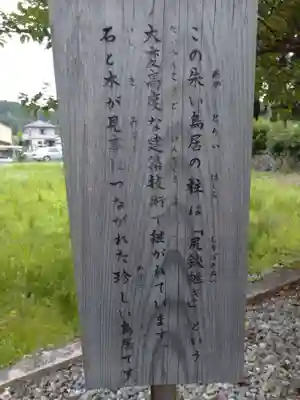 この朱い鳥居の柱は「尻鋏継ぎ」という
大変高度な建築技術で継がれています
石と木が見事につながれた珍しい鳥居です